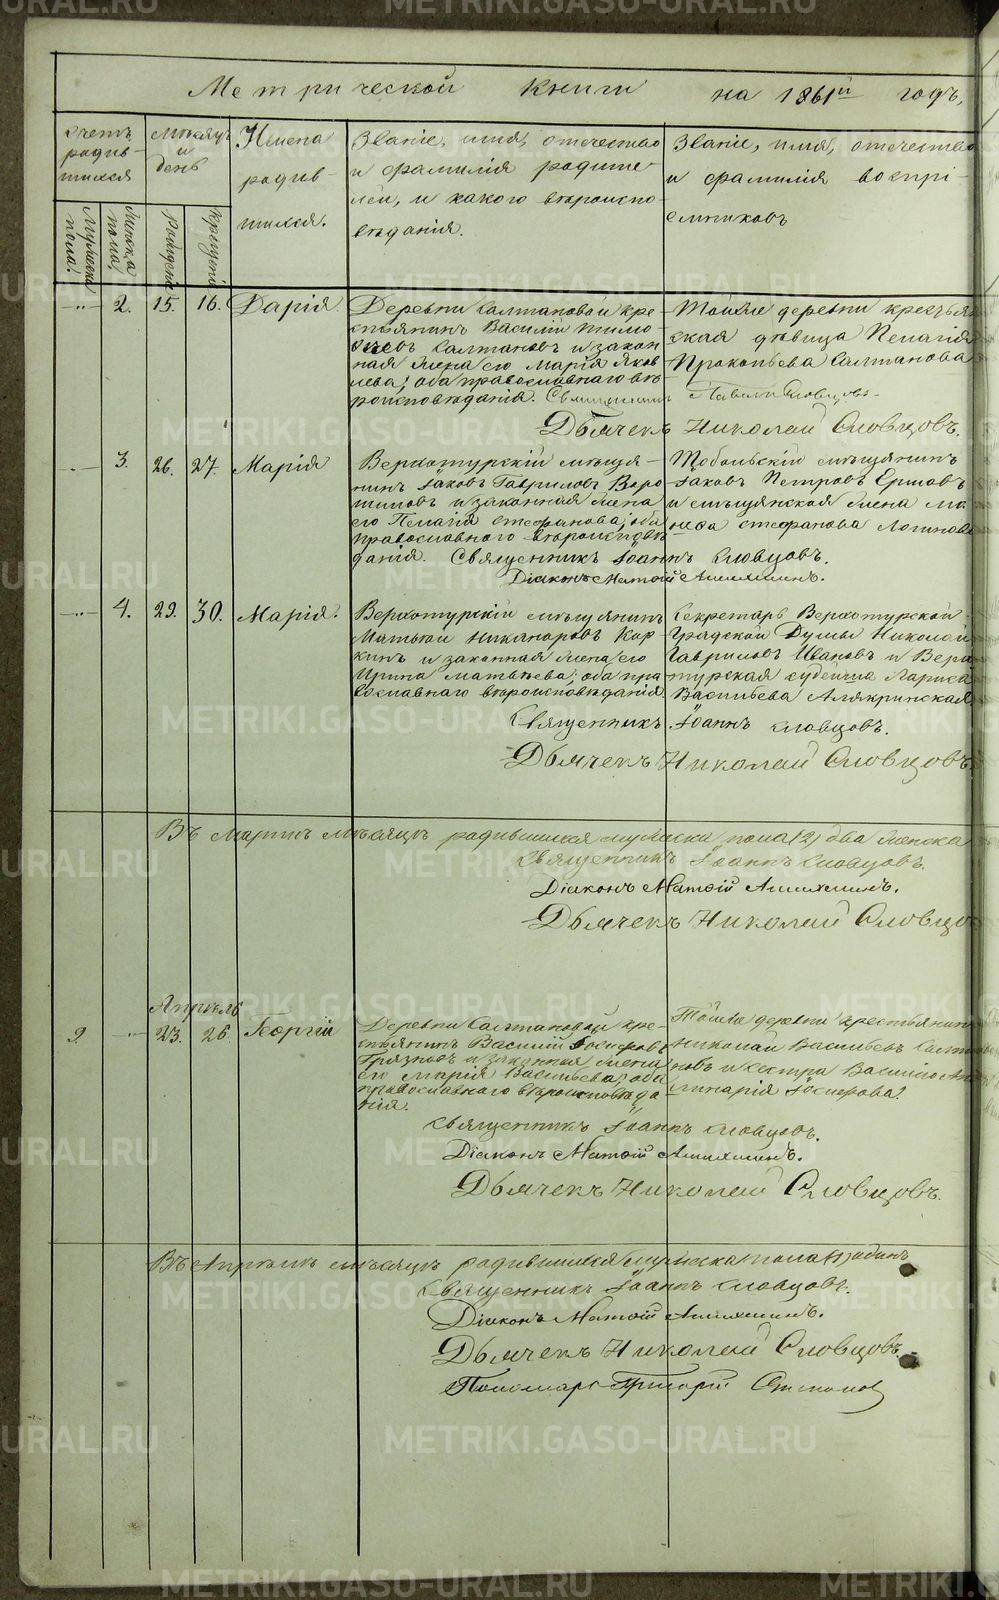 Метрической книги на 1861й годъ,
счетъ родив-шихся
Мужеска пола.
Женска пола.
Месяцъ и день
Рожденія
Крещенія
Имена родив-шихся.
Званіе, имя, отчество
и фамилія родите-
лей, и какого вѣроиспо-
вѣданія.
Званіе, имя, отчество
и фамилія воспрі-
емниковъ
2. 15. 16. Дарія.
Деревни Салтановой кре-
стьянинъ Василій Тимо-
Салтановъ и закон-
ная жена его Марія Яков
лева; оба православнаго вѣ-
роисповѣданія.
Тойже деревни крестья
ская дѣвица Пелагія
Прокопьева Салтанова
Дьячекъ Николай Словцовъ.
3. 26. 27. Марія
Верхотурскій мѣща-
нинъ Іаковъ Гавриловъ Воро
шиловъ и законная жена
его Пелагія Стефанова; оба
православнаго вѣроисповѣ
данія. Священникъ Іоаннъ Словцовъ.
Тобольскій мѣщанинъ
Іаковъ Петровъ Ершовъ
и мѣщанская жена
Стефанова
Діаконъ Матѳій
4. 29. 30. Марія.
Верхотурскій мѣщанинъ
Матьвей Никаноровъ Кор
кинъ и законная жена его
Ирина Матьвѣева; оба пра
вославнаго вѣроисповѣданія
Секретарь Верхотурской
Градской Думы Николай
Гавриловъ Ивановъ и Верхо
турская Лариса
Васильева
Священникъ Іоаннъ Словцовъ.
Дьячекъ Николай Словцовъ.
Въ Мартѣ мѣсяцѣ родившихся мужеска пола (2) два женска
Священникъ Іоаннъ Словцовъ.
Діаконъ Матѳій
Дьячекъ Николай Словцо
Апрѣль
2. 23. 26. Георгій
Деревни Салтановой кре-
стьянинъ Василій Іосифовъ
Грязновъ и законная жена
его Марія Васильева; оба
православнаго вѣроисповѣда
нія.
Тойже деревни крестьянин
Николай Васильевъ Салта
новъ и сестра Василію
Іосифова.
Священникъ Іоаннъ Словцовъ.
Діаконъ Матѳій
Дьячекъ Николай Словцовъ.
Въ Апрѣлѣ мѣсяцѣ родившихся мужеска пола (1) одинъ
Священникъ Іоаннъ Словцовъ.
Діаконъ Матѳій
Дьячекъ Николай Словцовъ.
Пономарь Григорій
METRIKI.GASO-URAL.RU